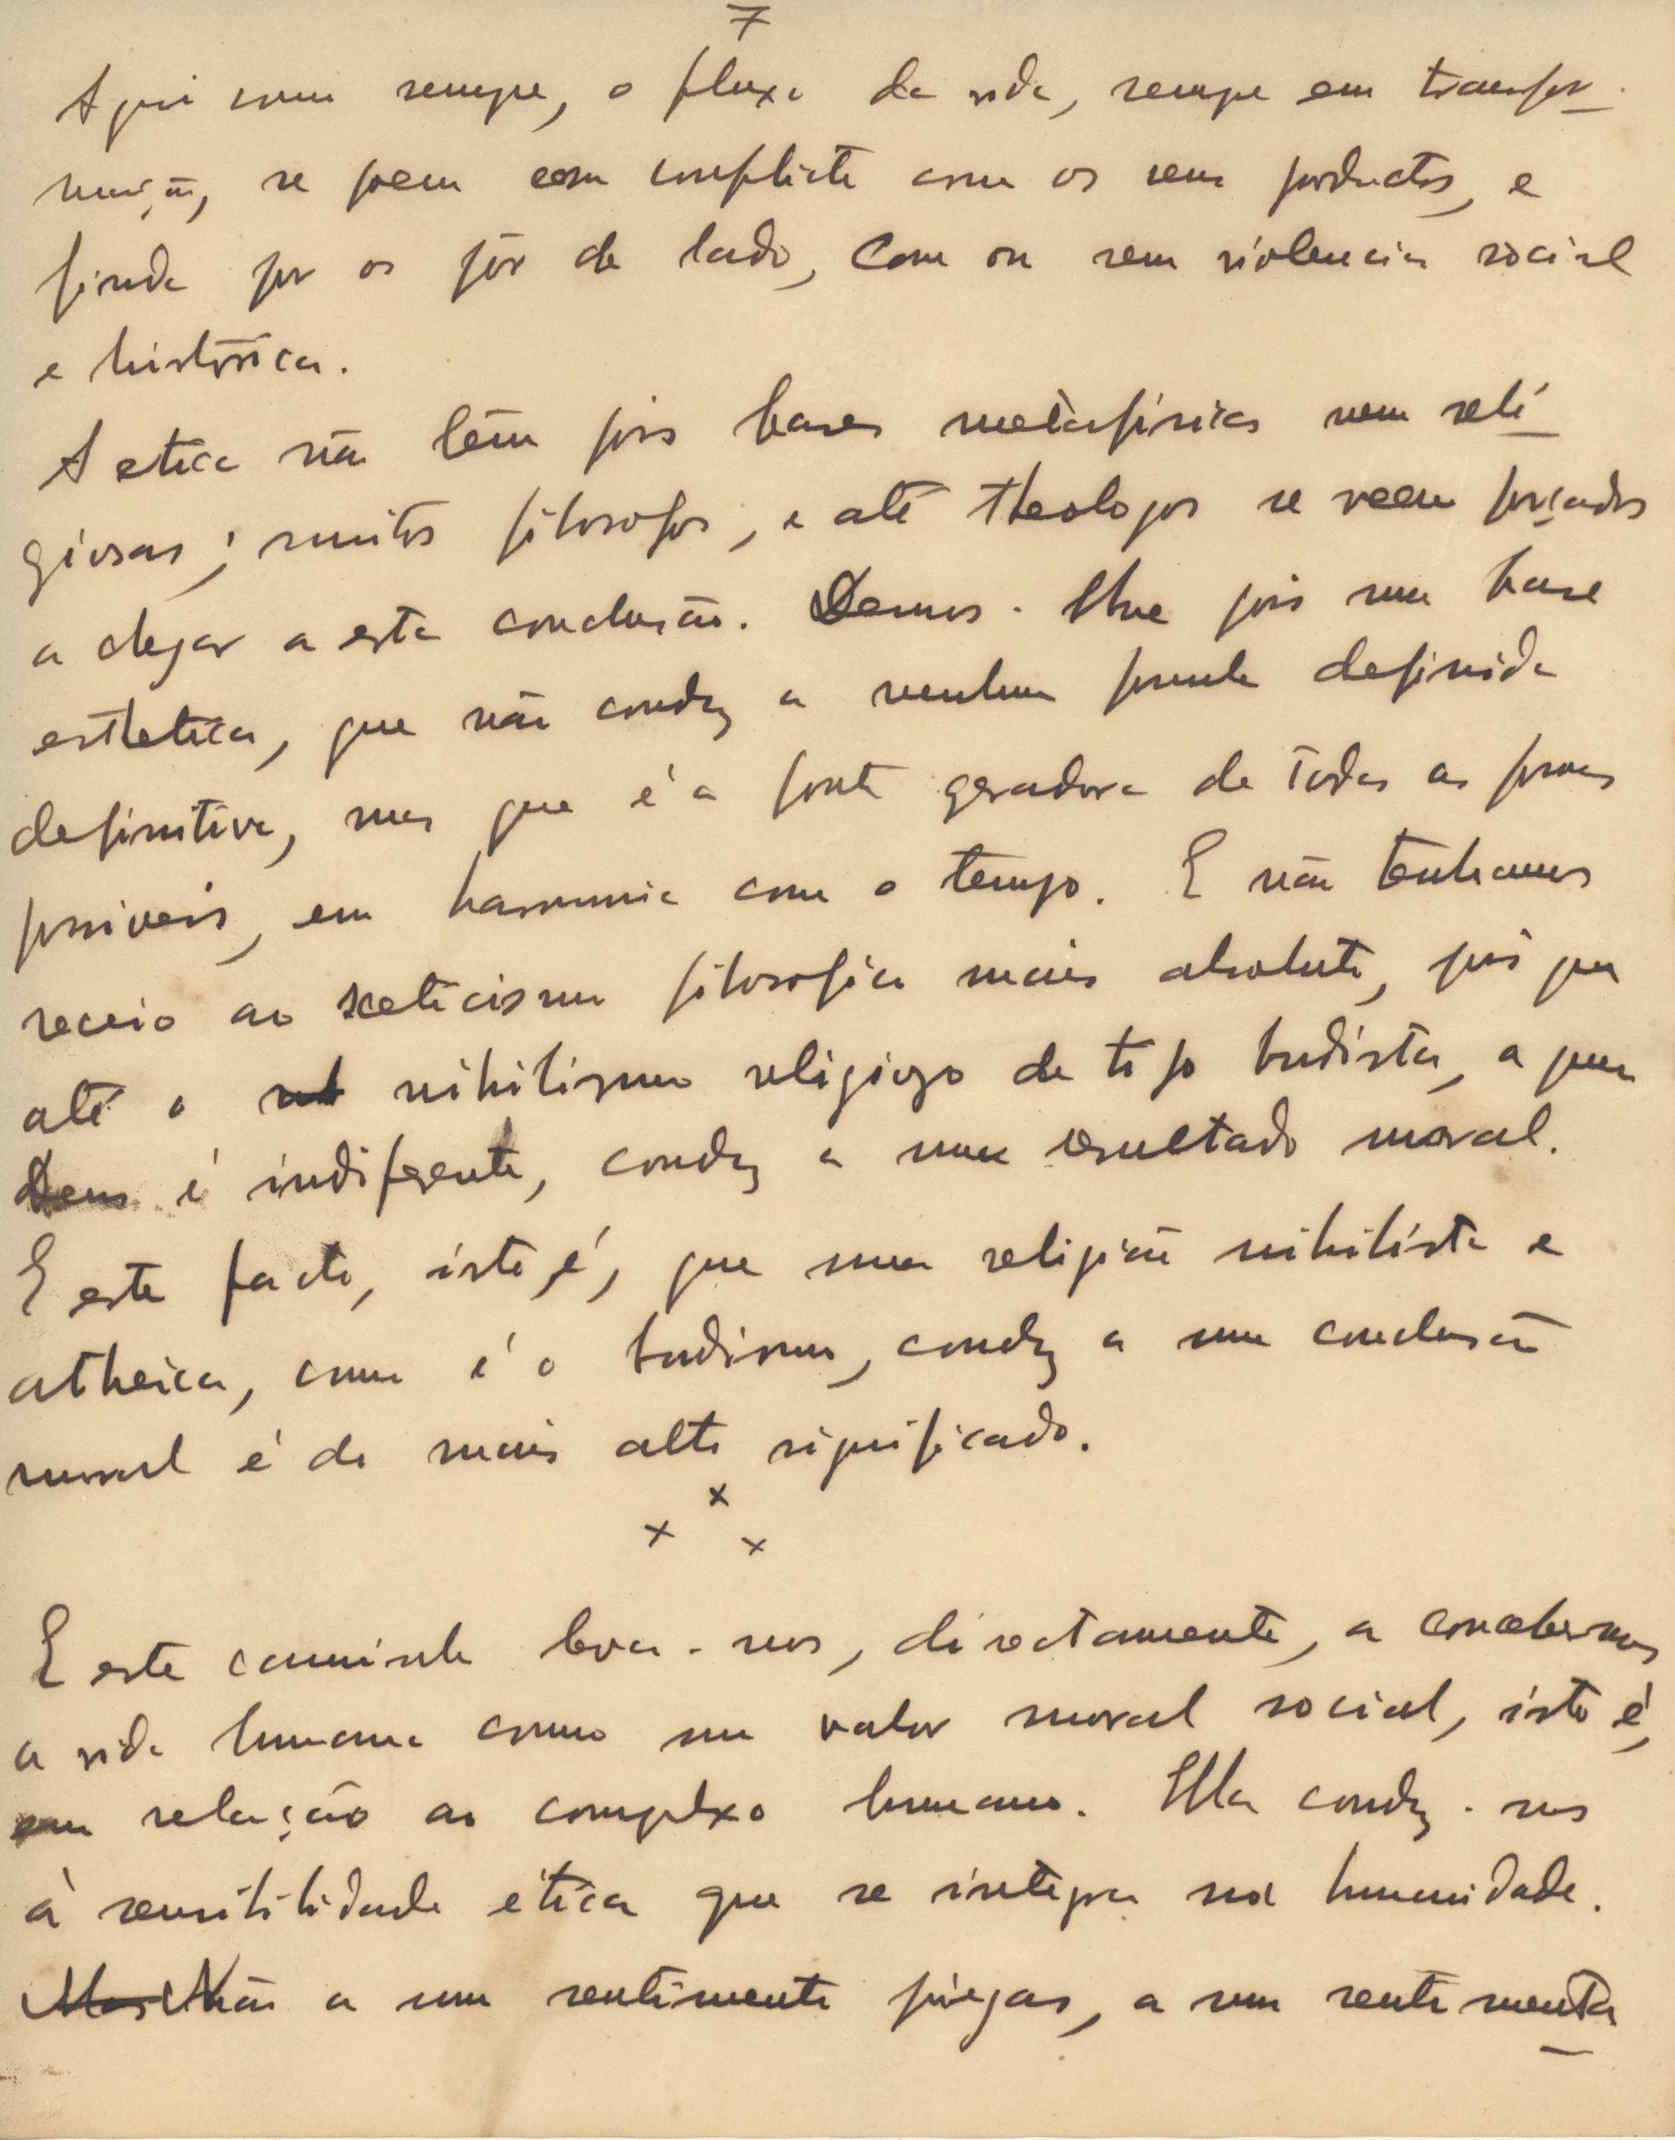 7
Aqui como sempre, o fluxo da vida, sempre em transfor-
mação, se poem em conflicto com os seus productos, e
finda por os pôr de lado, com ou sem violencia social
e histórica.
A etica não têm pois bases metàfísicas nem reli-
giosas; muitos filosofos, e até theologos se veem forçados
a chegar a esta conclusão. Demos-lhe pois uma base
esthetica, que não conduz a nenhuma forma definida
definitiva, mas que é a fonte geradora de todas as formas
possiveis, em harmonia com o tempo. E não tenhamos
receio ao sceticismo filosofico mais absoluto, pois que
até o nihilismo religiozo de tipo budista, a quem
Deus é indiferente, conduz a um resultado moral.
E este facto, isto é, que uma religião nihilista e
atheica, como é o budismo, conduz a uma conclusão
moral é do mais alto significado.
x
x x
E este caminho leva-nos, directamente, a concebermos
a vida humana como um valor moral social, isto é,
em relação ao complexo humano. Ella conduz-nos
à sensibilidade ética que se integra na humanidade.
Mas Não a um sentimento piegas, a um sentimenta-